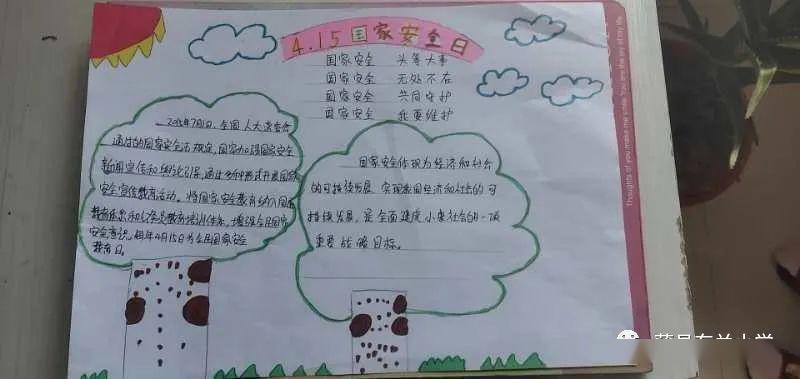 4.15国家安全日
国家安全 头等大事
国家安全 无处不在
国家安全 共同守护
国家安全 我要维护
2015年7月1日,全国人大常委会
通过的国家安全法规定,国家加强国家安全
新闻宣传和舆论引导,通过多种形式开展国家
安全宣传教育活动。将国家安全教育纳入国民
教育体系和公务员教育培训体系,增强全民国家
安全意识,每年4月15日为全民国家安全
教育日。
国家安体现为经济和社会
的可持续发展 实现我国经济和社会的可
持续发展,是全面建度小康社会的一项
重要战略目标。
Thoughts of you make me smile. You are the joy of my life.